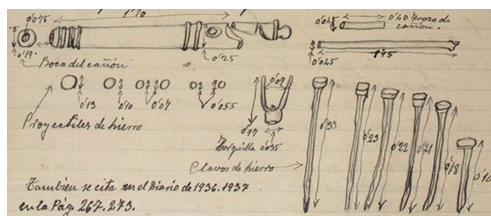 0'075
1'70
0'19
0'25
Boca del cañón
0'045
0'40 Trozo de
cañón.
0'045
1'15
0'13
0'10
0'07
0'055
Proyectiles de hierro
0'09
0'17
Horquilla 0'035
Clavos de hierro
0'33
0'23
0'22
0'21
0'18
0'10
También se cita en el Diario de 1936.1937
en la Pág. 267.273.